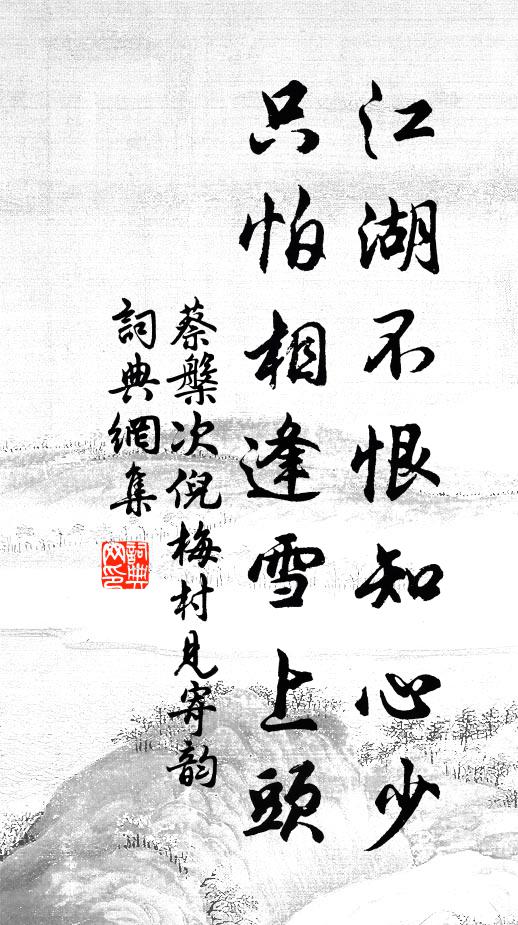 江湖不恨知心少
只怕相逢雪上頭
蔡槃次倪梅村見寄韵
詞典網集
詞典網印